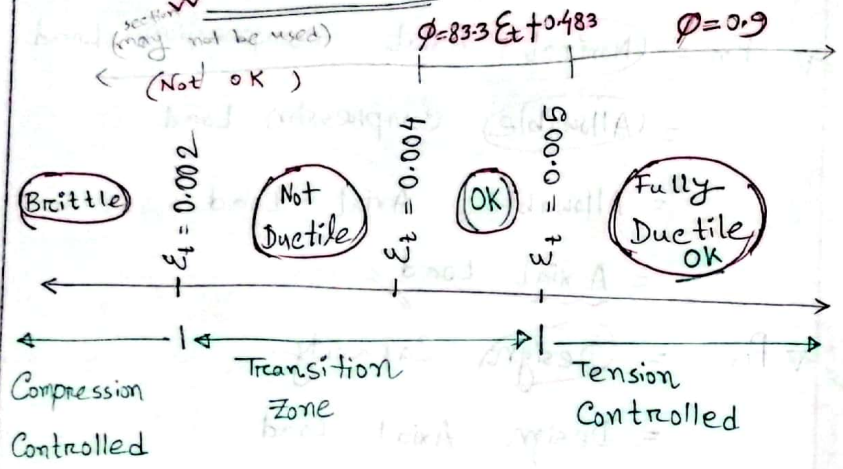 section
(may not be used)
(Not OK)
φ=83.3 Ɛt+0.483
φ=0.9
Brittle
Ɛt = 0.002
Not
Ductile
Ɛt = 0.004
OK
Ɛt = 0.005
Fully
Ductile
OK
Compression
Controlled
Transition
Zone
Tension
Controlled